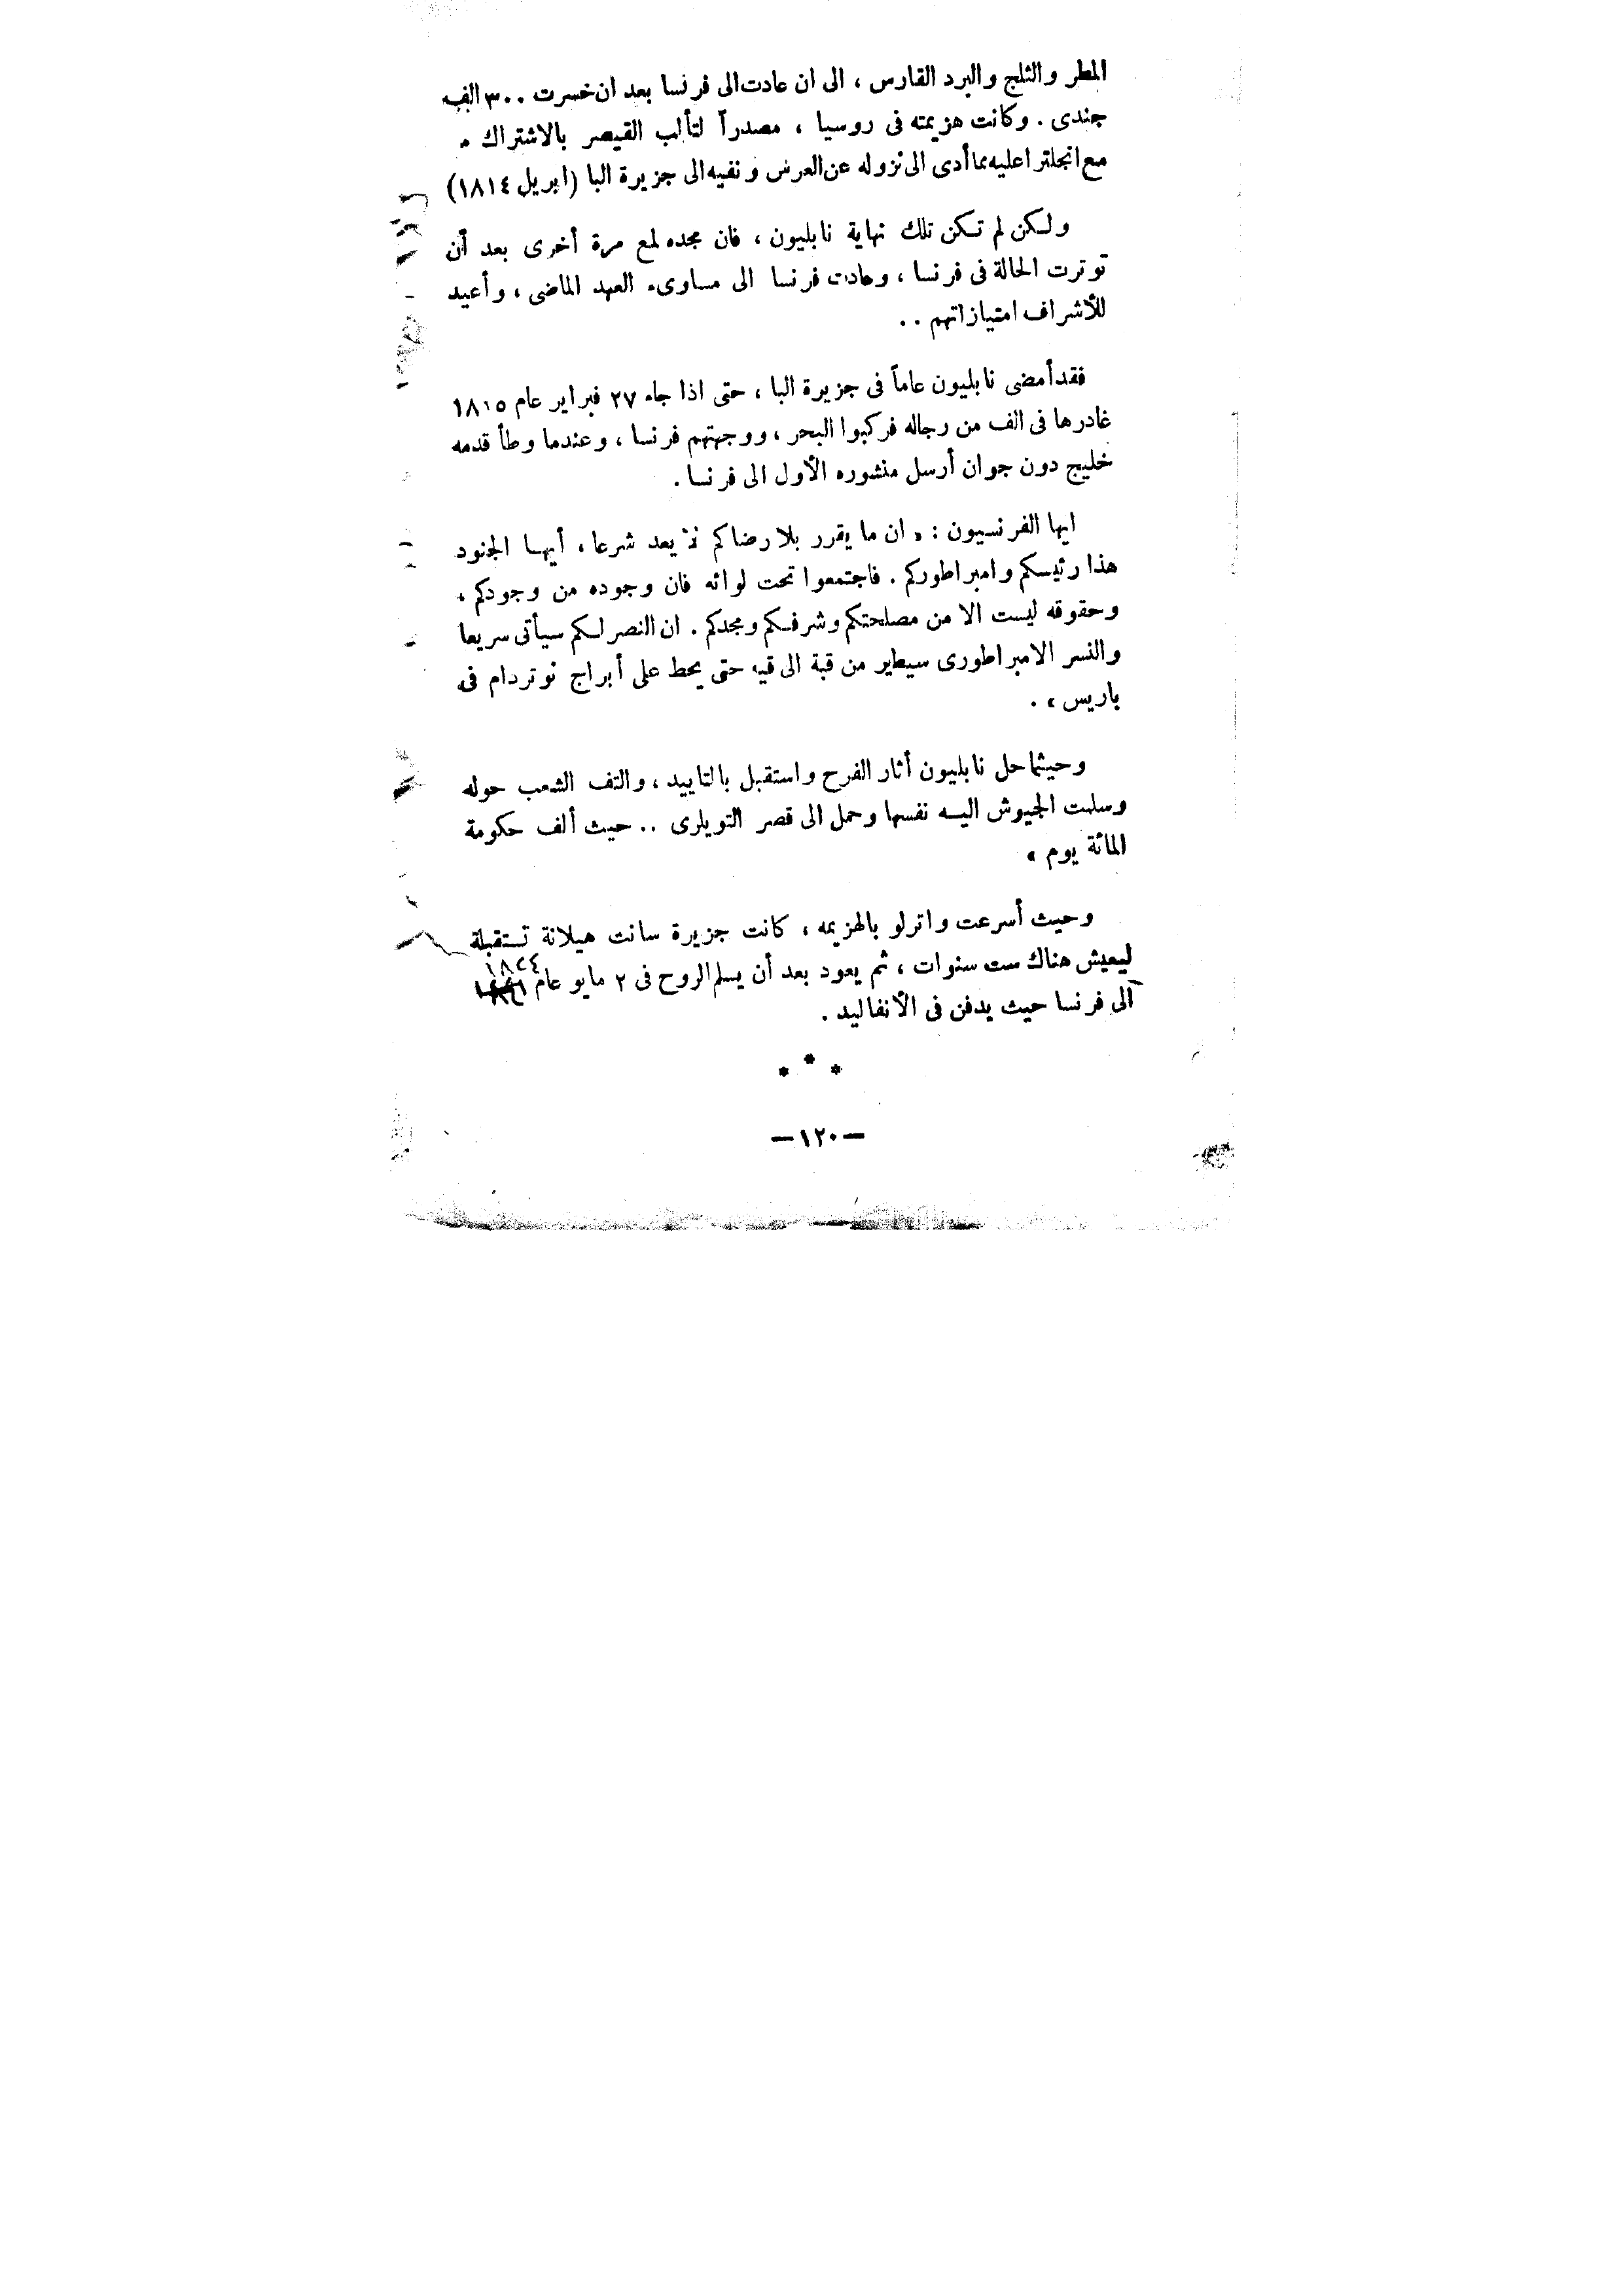 المطر والثلج والبرد القارس ، الى ان عادت الى فرنسا بعد ان خسرت ٣٠٠ الف
جندى . وكانت هزيمته فى روسيا ، مصدراً لتألب القيصر بالاشتراك
مع انجلترا عليه مما أدى الى نزوله عن العرش ونفيه الى جزيرة البا (ابريل ١٨١٤)
ولكن لم تكن تلك نهاية نابليون ، فان مجده لمع مرة أخرى بعد أن
توترت الحالة فى فرنسا ، وعادت فرنسا الى مساوىء العهد الماضى ، وأعيد
للأشراف امتيازاتهم ..
فقد أمضى نابليون عاماً فى جزيرة البا ، حتى اذا جاء ٢٧ فبراير عام ١٨١٥
غادرها فى الف من رجاله فركبوا البحر ، ووجهتهم فرنسا ، وعندما وطأ قدمه
خليج دون جوان أرسل منشوره الأول الى فرنسا .
ايها الفرنسيون : « ان ما يقرر بلا رضاكم لا يعد شرعا ، أيها الجنود
هذا رئيسكم وامبراطوركم . فاجتمعوا تحت لوائه فان وجوده من وجودكم ،
وحقوقه ليست الا من مصلحتكم وشرفكم ومجدكم . ان النصر لكم سيأتى سريعا
والنسر الامبراطورى سيطير من قبة الى قبه حتى يحط على أبراج نوتردام فى
باريس » .
وحيثما حل نابليون أثار الفرح واستقبل بالتاييد ، والتف الشعب حوله
وسلمت الجيوش اليه نفسها وحمل الى قصر التويلرى .. حيث ألف حكومة
المائة يوم »
وحيث أسرعت واترلو بالهزيمه ، كانت جزيرة سانت هيلانة تستقبلة
ليعيش هناك ست سنوات ، ثم يعود بعد أن يسلم الروح فى ٢ مايو عام
الى فرنسا حيث يدفن فى الأنفاليد .
* * *
— ١٢٠ —